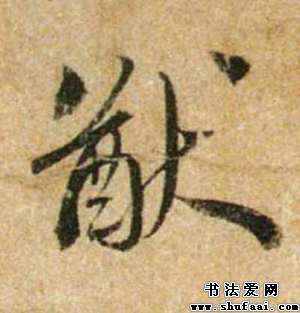 猷
书法爱网
www.shufaai.com